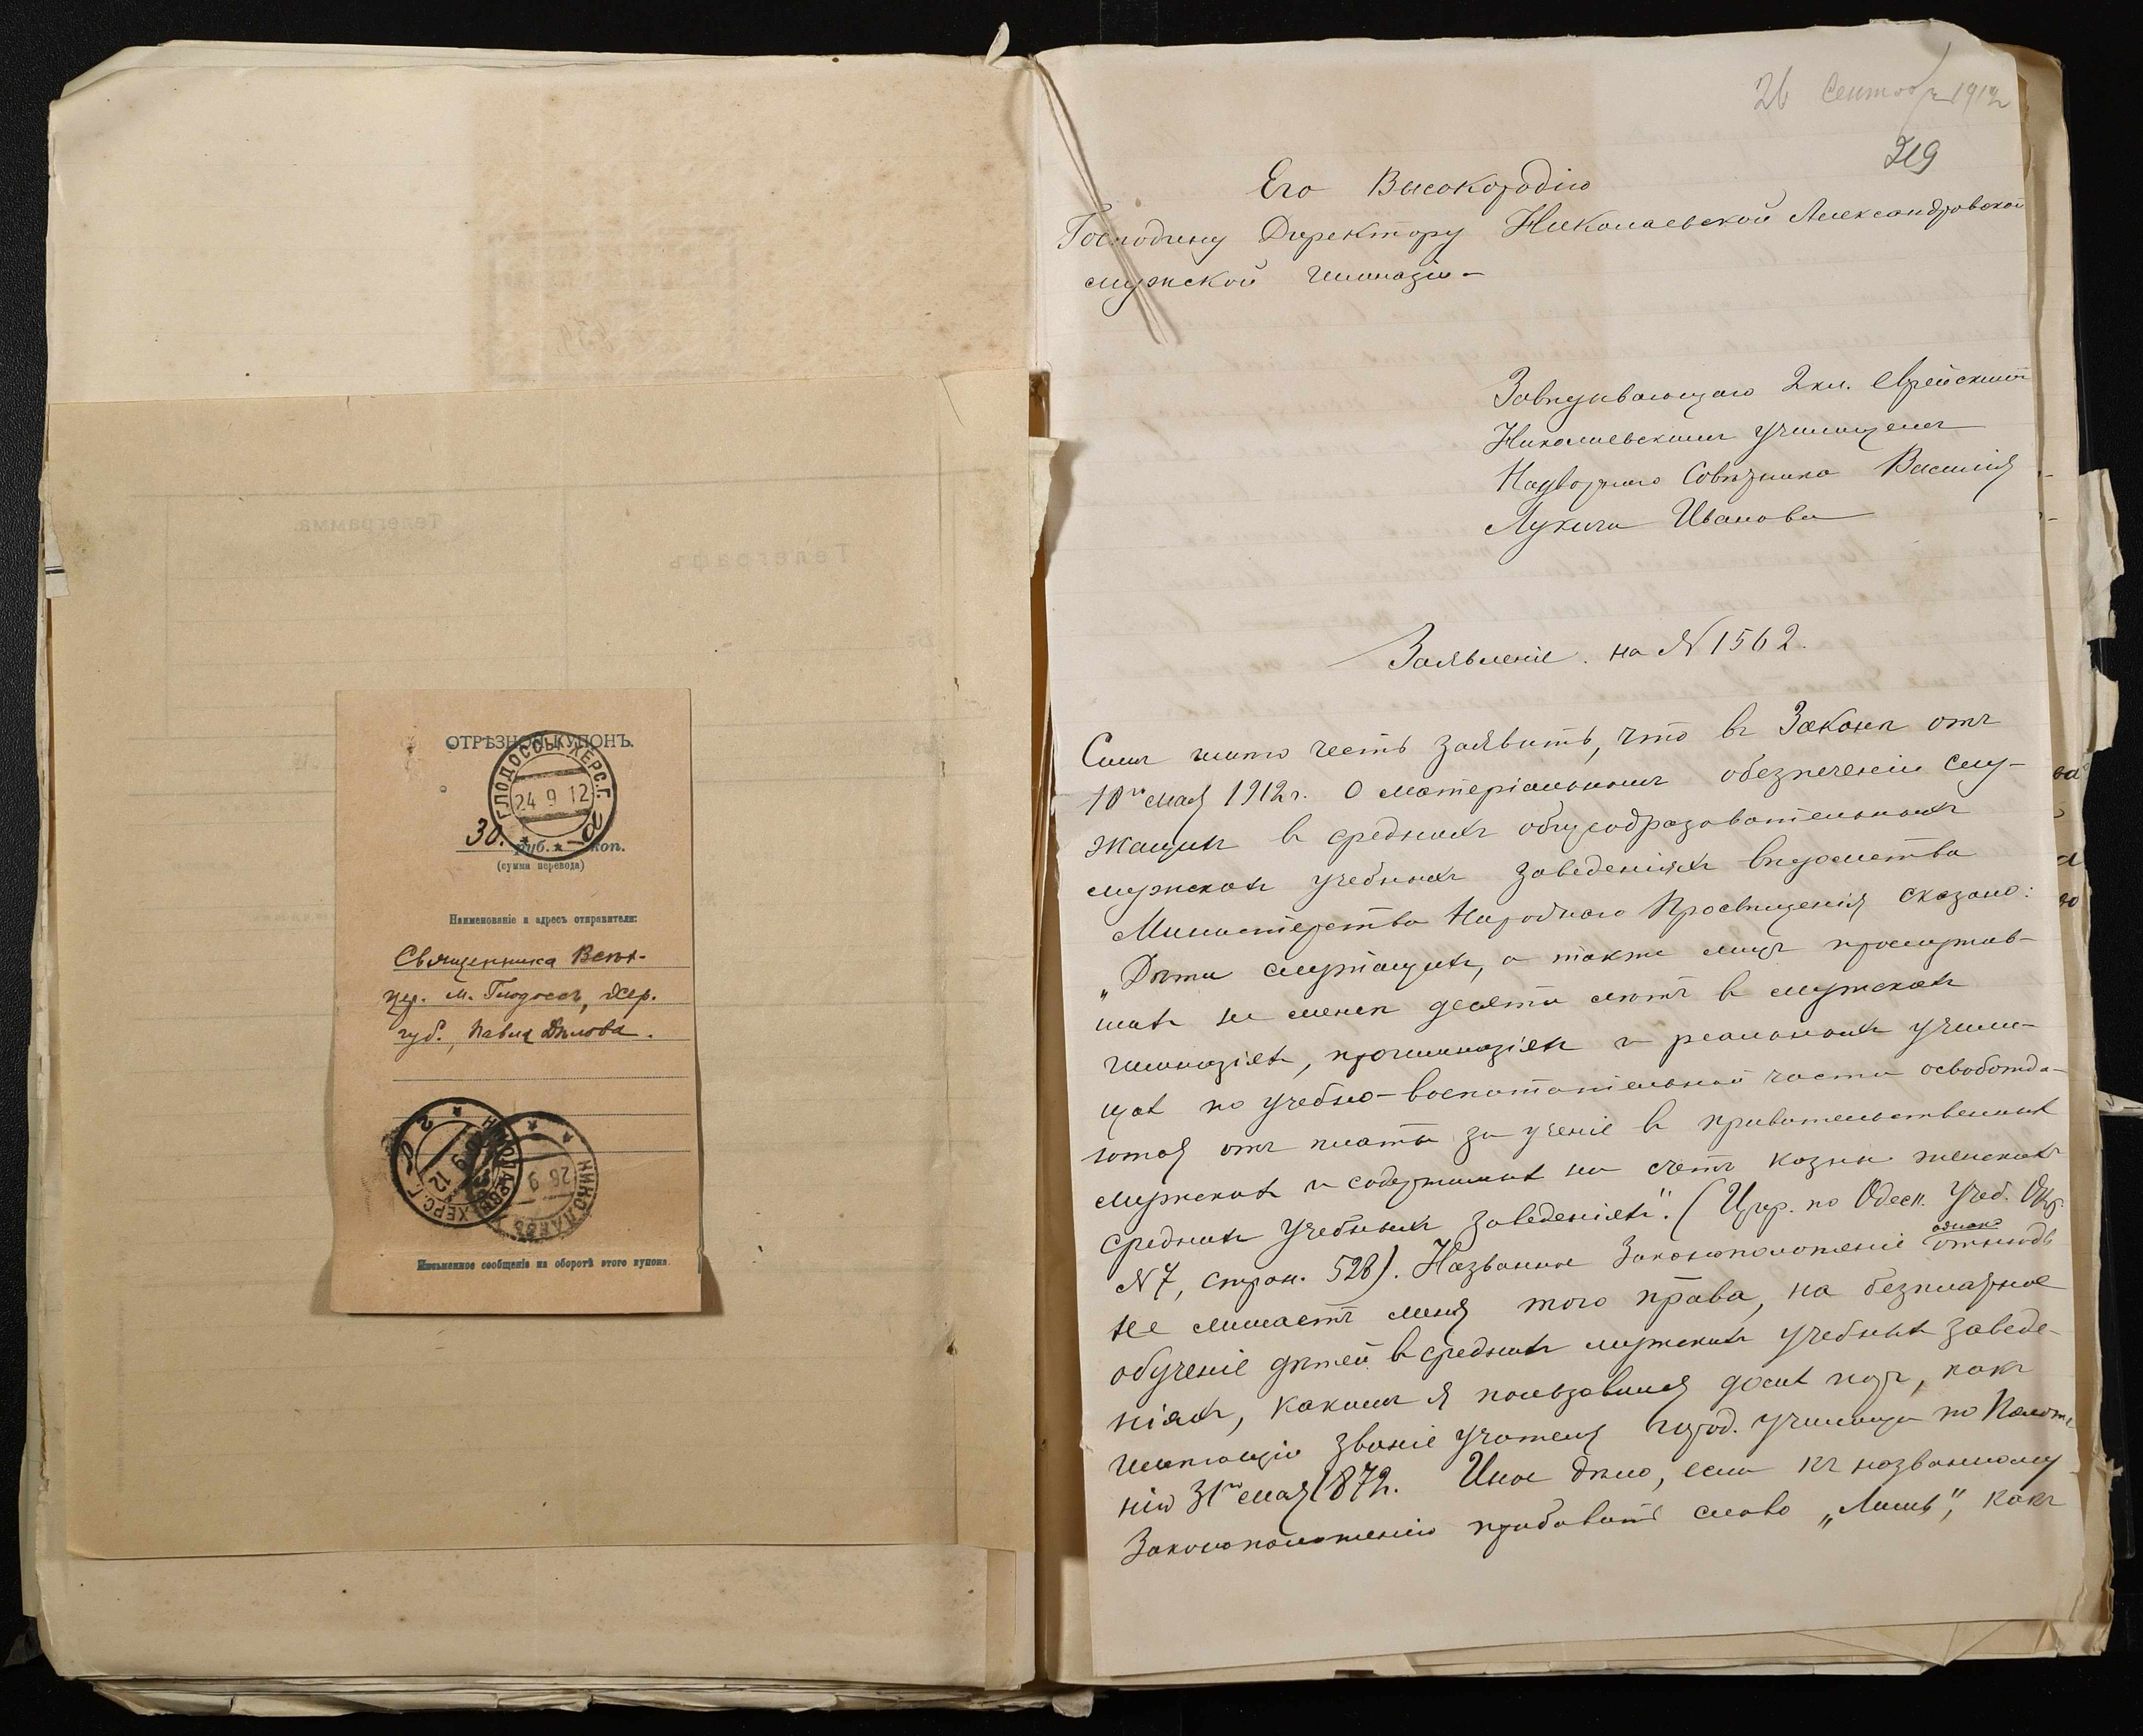 ОТРѢЗНОЙ КУПОНЪ.
ГЛОДОССЫ ХЕРС.Г.
24 9 12
30. руб. коп.
(сумма перевода)
Наименованіе и адресъ отправителя:
Священника
цер. м. Глодоссъ, Хер.
губ., Павла Дѣлова.
НИКОЛАЕВЪ ХЕРС. Г.
9 12
НИКОЛАЕВЪ
26 9
Письменное сообщеніе на оборотѣ этого купона.
Телеграмма.
Телеграфъ
26 Сентября 1912
219
Его Высокородію
Господину Директору Николаевской Александровской
мужской гимназіи
Завѣдывающаго 2 кл. еврейскимъ
Николаевскимъ училищемъ
Надворнаго Совѣтника Василія
Лукича Иванова
Заявленіе. на № 1562.
Симъ имѣю честь заявить, что въ Законѣ отъ
10го мая 1912 г. О матеріальномъ обезпеченіи слу-
жащихъ въ среднихъ общеобразовательныхъ
мужскихъ учебныхъ заведеніяхъ вѣдомства
Министерства Народнаго Просвѣщенія сказано:
„Дѣти служащихъ, а также лицъ прослужив-
шихъ не менѣе десяти лѣтъ въ мужскихъ
гимназіяхъ, прогимназіяхъ и реальныхъ учили-
щахъ по учебно-воспитательной части освобожда-
ются отъ платы за ученіе въ правительственныхъ
мужскихъ и содержимыхъ на счетъ казны женскихъ
среднихъ учебныхъ заведеніяхъ". (Цирк. по Одесск. Учеб. Окр.
№ 7, стран. 528). Названное Законоположеніе однако отнюдь
не лишаетъ меня того права, на безплатное
обученіе дѣтей въ среднихъ мужскихъ учебныхъ заведе-
ніяхъ, какимъ я пользовался досихъ поръ, какъ
имѣющій званіе учителя город. училища по Положе
нію 31го мая 1872 г. Иное дѣло, если къ названному
Законоположенію прибавить слово „Лишь", какъ